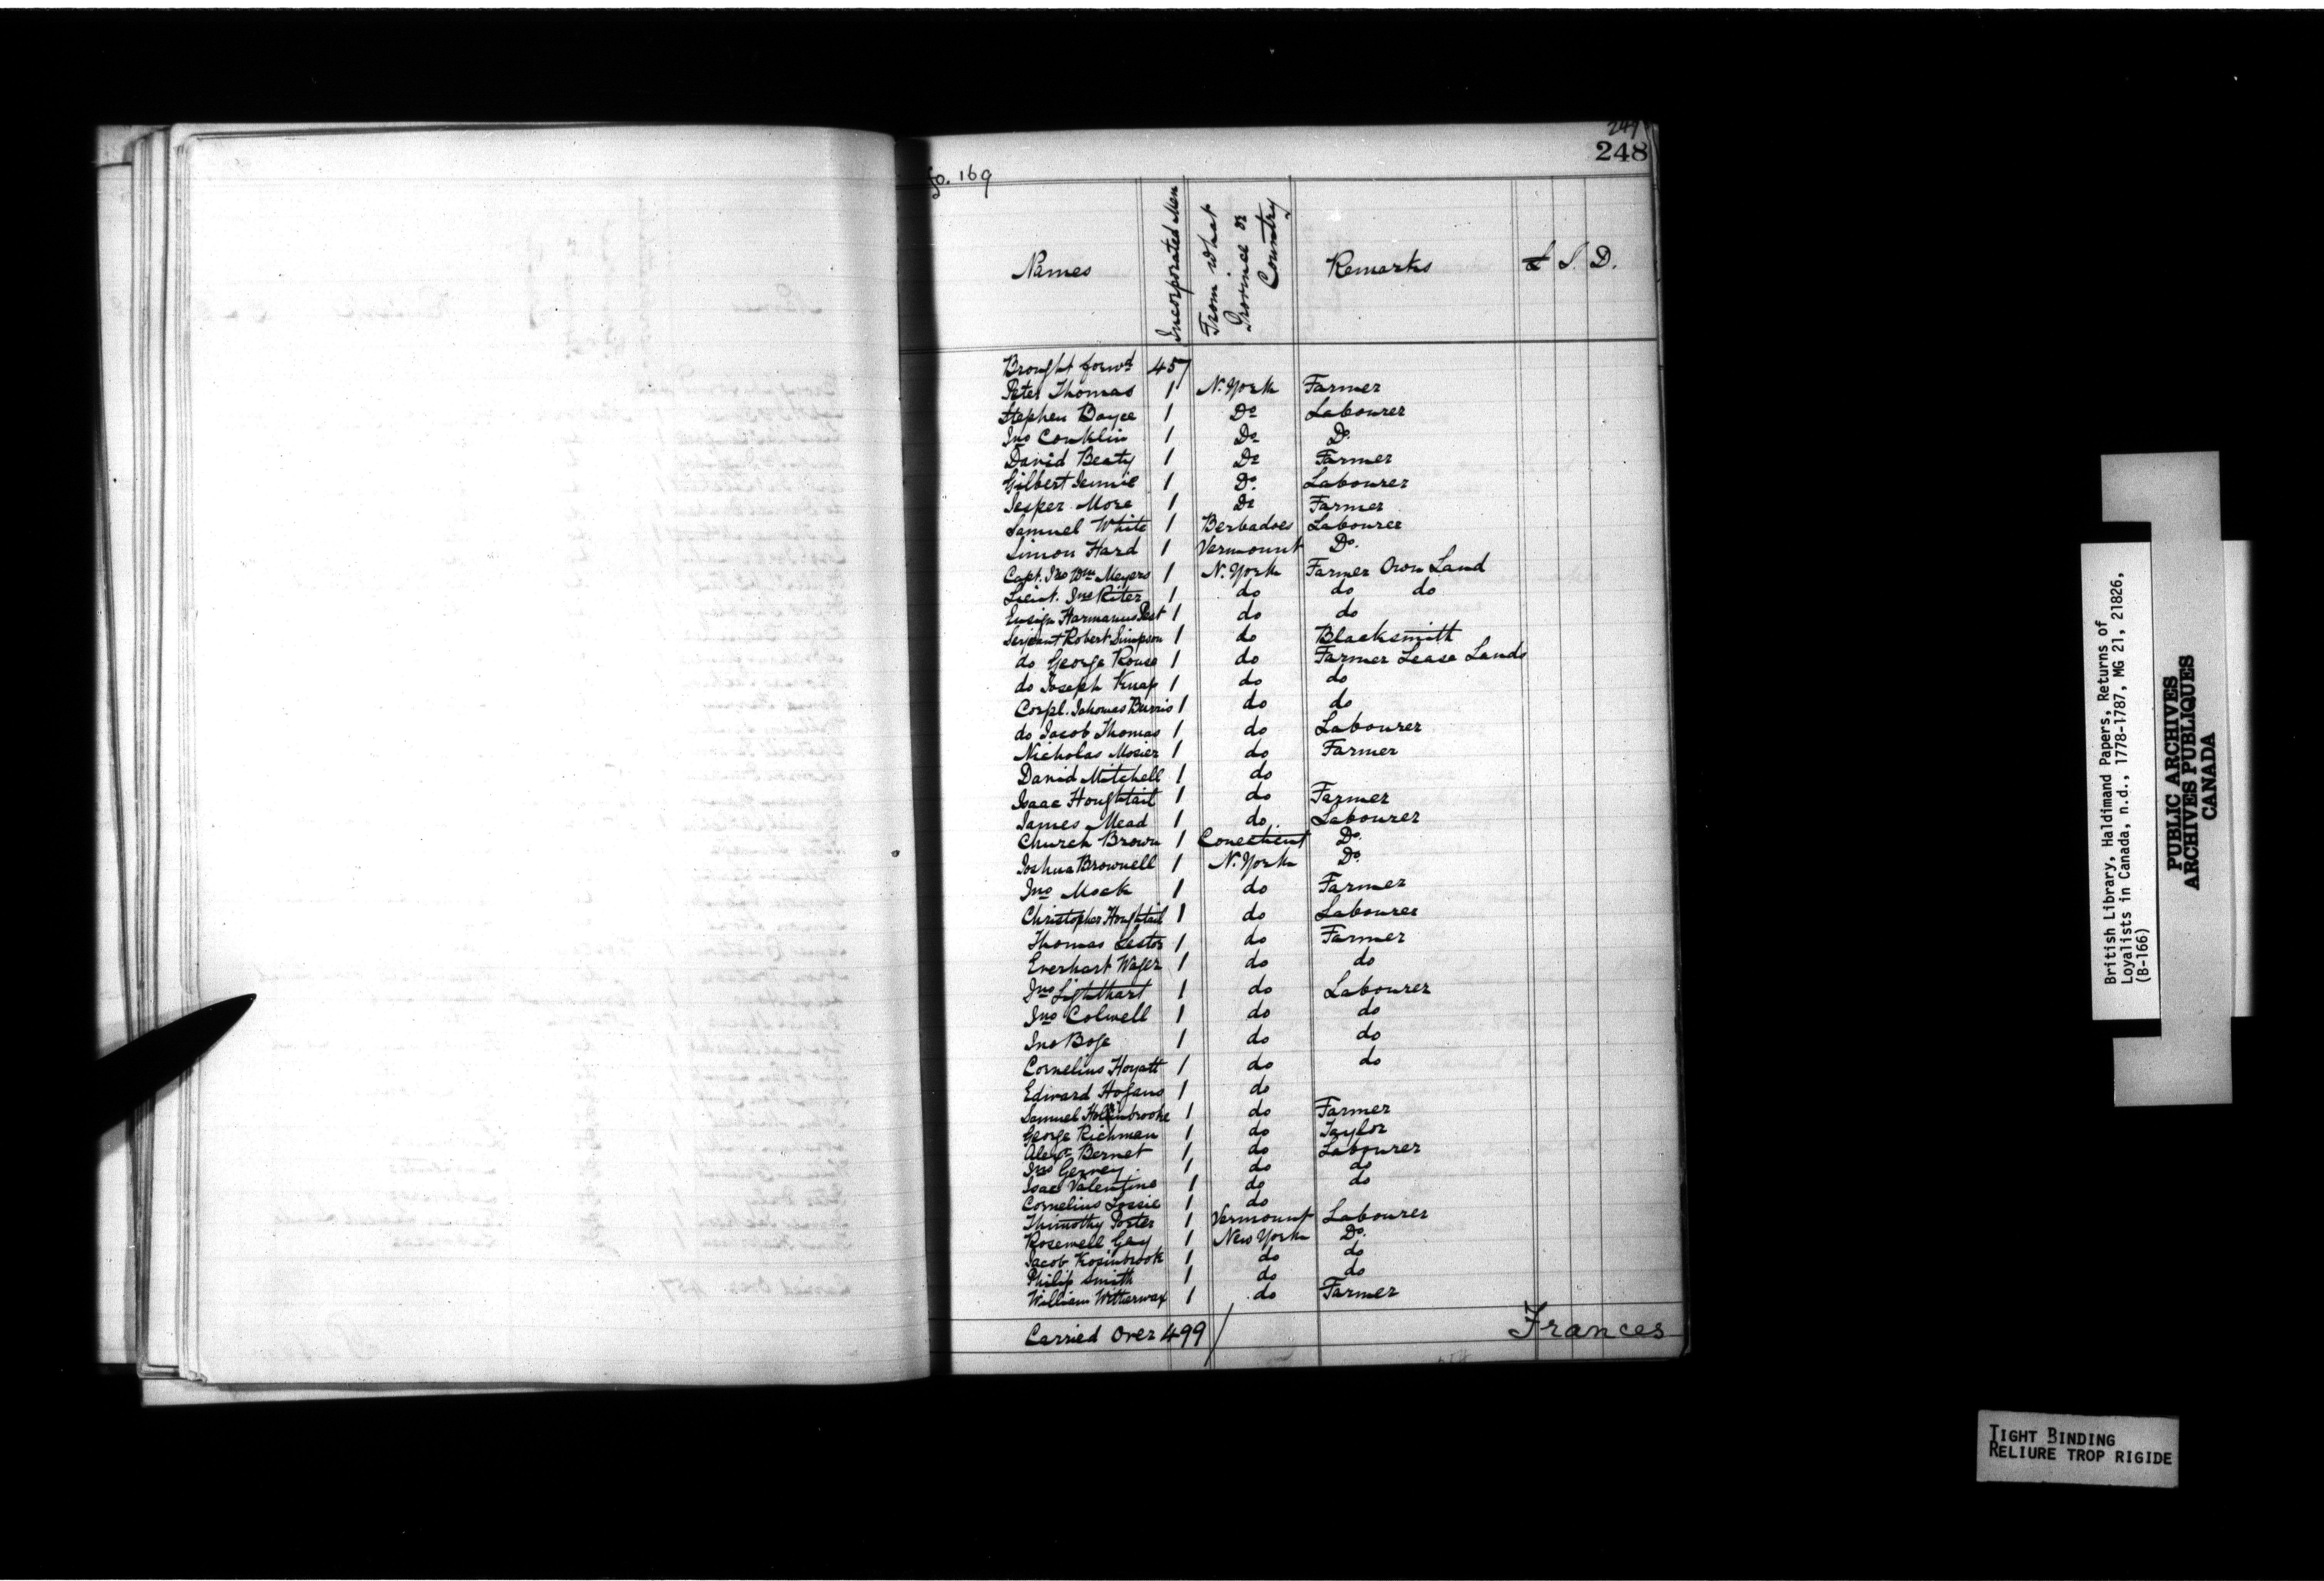 247
248
fo. 169
Names | Incorporated Men | From what Province or Country | Remarks | £ S. D.
Brought forwd 457
Peter Thomas 1 N. York Farmer
Stephen Boyce 1 Do Labourer
Jno Conklin 1 Do Do
David Beaty 1 Do Farmer
Gilbert Jennie 1 Do. Labourer
Jesper More 1 Do Farmer
Samuel White 1 Berbadoes Labourer
Simon Hard 1 Vermount Do.
Capt. Jno Wm Meyers 1 N. York Farmer Own Land
Lieut. Jno Riter 1 do do do
Ensign Harmanus Pest 1 do do
Serjeant Robert Simpson 1 do Blacksmith
do George Rouse 1 do Farmer Lease Lands
do Joseph Knap 1 do do
Corpl. Tahomas Burris 1 do do
do Jacob Thomas 1 do Labourer
Nicholas Mosier 1 do Farmer
David Mitchell 1 do
Isaac Houghtail 1 do Farmer
James Mead 1 do Labourer
Church Brown 1 Conecticut Do.
Joshua Brownell 1 N. York Do.
Jno Mock 1 do Farmer
Christopher Houghtail 1 do Labourer
Thomas Lester 1 do Farmer
Everhart Wager 1 do do
Jno Lighthart 1 do Labourer
Jno Colwell 1 do do
Jno Boge 1 do do
Cornelius Hoyatt 1 do do
Edward Hogans 1 do
Samuel Hollinbrooke 1 do Farmer
George Richman 1 do Taylor
Alexr Bernet 1 do Labourer
Jno Gerney 1 do do
Isac Valentine 1 do do
Cornelius Lossie 1 do
Thimothy Porter 1 Vermount Labourer
Rosewell Gay 1 New York Do.
Jacob Kosinbrook 1 do do
Philip Smith 1 do do
William Witterwax 1 do Farmer
Carried Over 499
Frances
British Library, Haldimand Papers, Returns of
Loyalists in Canada, n.d., 1778-1787, MG 21, 21826,
(B-166)
PUBLIC ARCHIVES
ARCHIVES PUBLIQUES
CANADA
TIGHT BINDING
RELIURE TROP RIGIDE